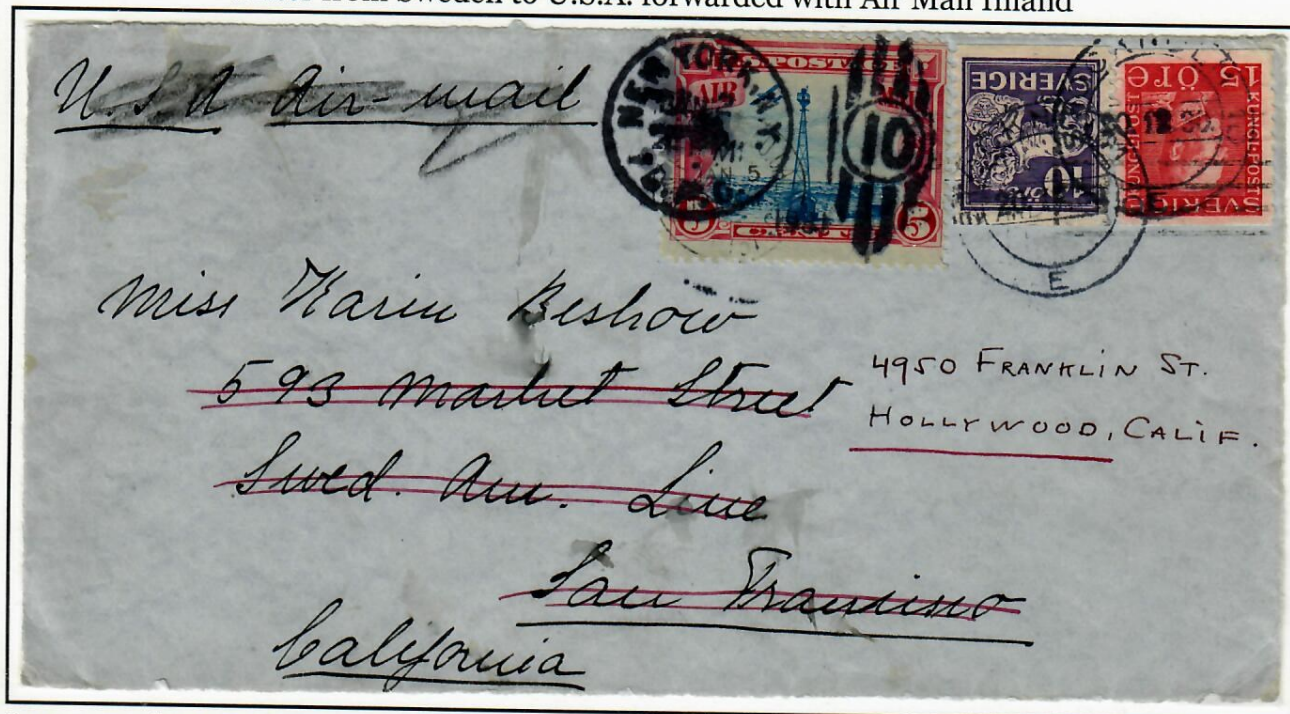 from Sweden to U.S.A. forwarded with Air Mail Inland
U.S.A Air-mail
NEW YORK, N.Y.
JAN 5
1931
POSTAGE
AIR
5 5
10
SVERIGE
10
ÖRE
15 ÖRE
KUNGL POSTEN
SVERIGE
E
E
Miss Karin Beskow
593 Market Street
Swed. Am. Line
San Francisco
California
4950 FRANKLIN ST.
HOLLYWOOD, CALIF.